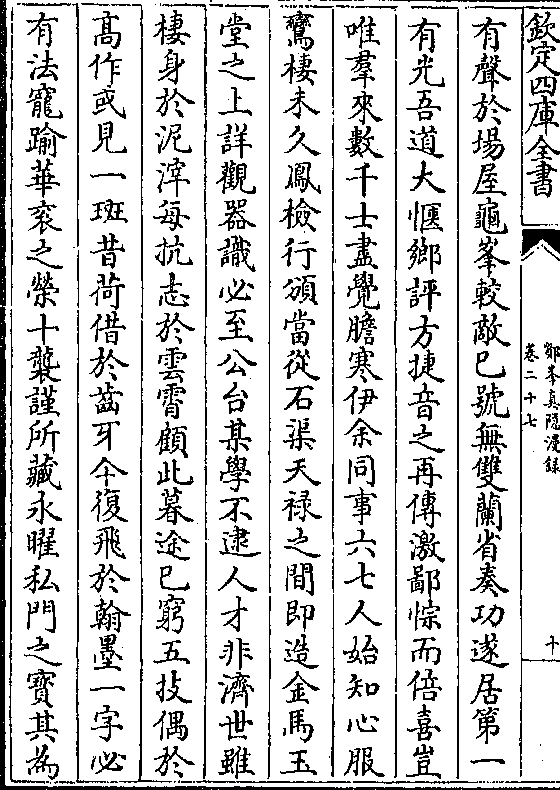 欽定四庫全書
鄮峯真隱漫錄
卷二十七
十
有聲於場屋龜峯較敵已號無雙蘭省奏功遂居第一
有光吾道大愜鄉評方捷音之再傳激鄙悰而倍喜豈
唯羣來數千士盡覺膽寒伊余同事六七人始知心服
鸞棲未久鳳檢行頒當從石渠天禄之間即造金馬玉
堂之上詳觀器識必至公台某學不逮人才非濟世雖
棲身於泥滓每抗志於雲霄顧此暮途已窮五技偶於
髙作或見一斑昔荷借於齒牙今復飛於翰墨一字必
有法寵踰華衮之榮十襲謹所藏永曜私門之寶其為